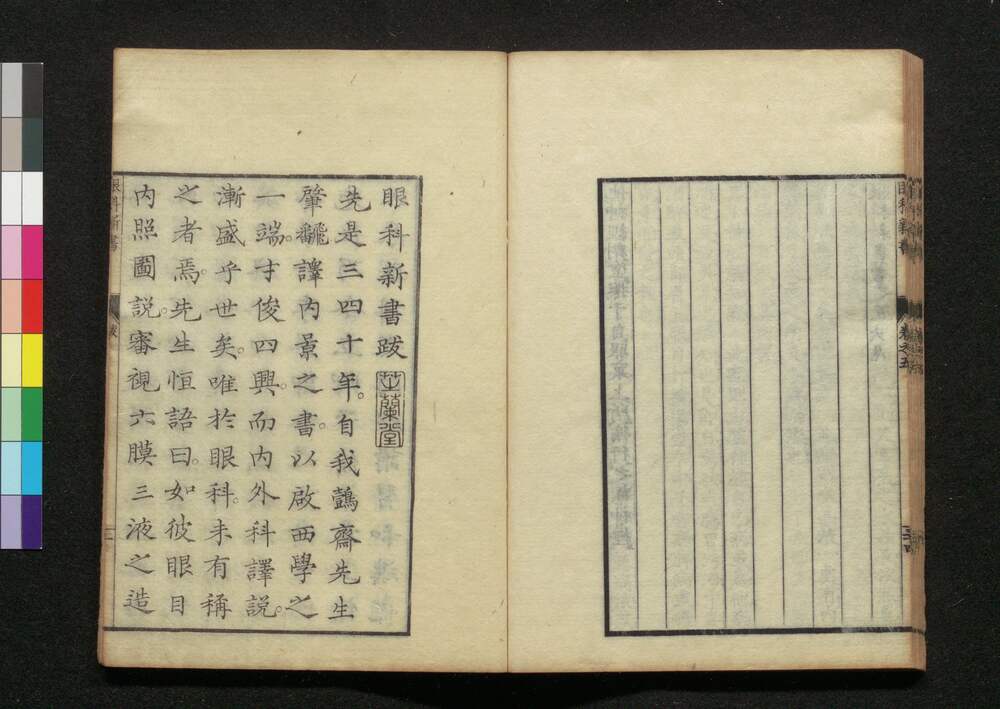 眼科新書跋 芷蘭堂
先是三四十年。自我鷧齋先生
肇飜譯內景之書。以啟西學之
一端。才俊四興。而內外科譯說。
漸盛乎世矣。唯於眼科。未有稱
之者焉。先生恒語曰。如彼眼目
內照圖說。審視六膜三液之造
眼科新書
跋
卷之五